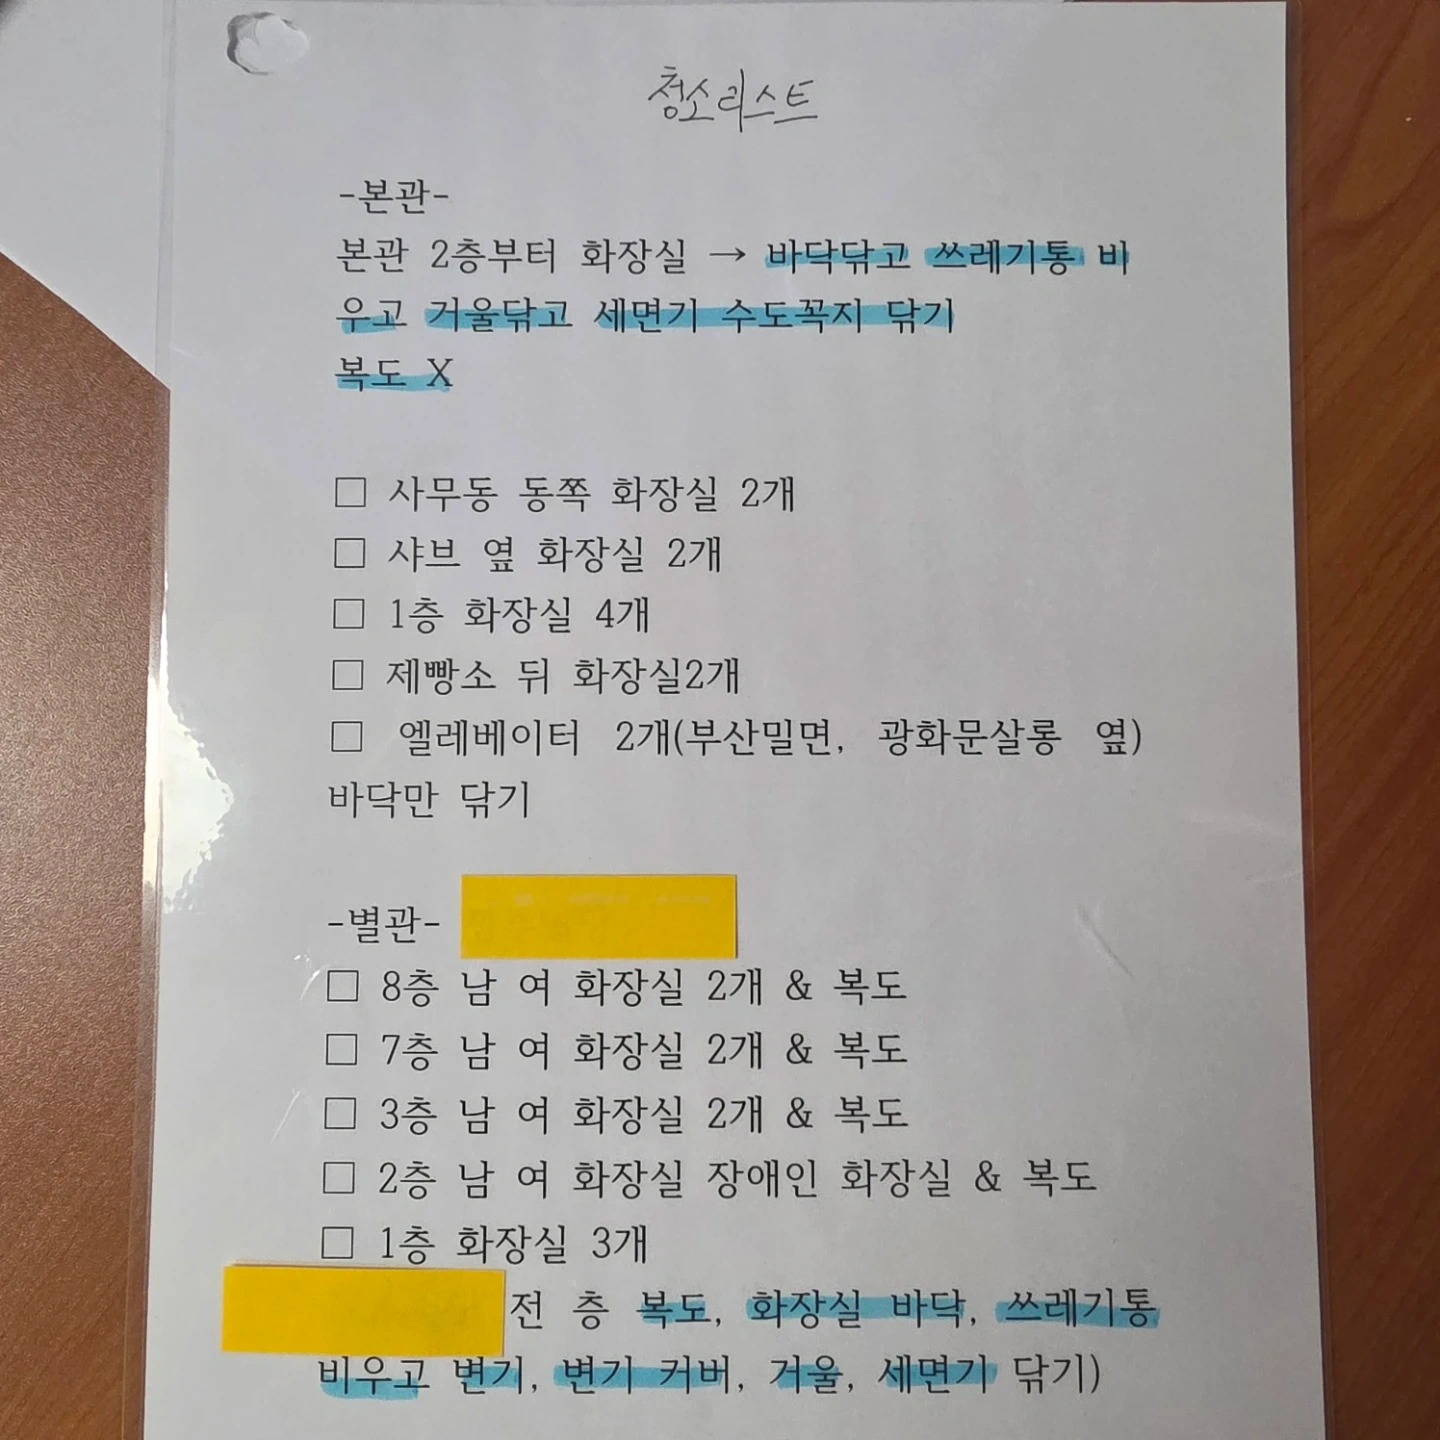 청소리스트
-본관-
본관 2층부터 화장실 → 바닥닦고 쓰레기통 비
우고 거울닦고 세면기 수도꼭지 닦기
복도 X
□ 사무동 동쪽 화장실 2개
□ 샤브 옆 화장실 2개
□ 1층 화장실 4개
□ 제빵소 뒤 화장실2개
□ 엘레베이터 2개(부산밀면, 광화문살롱 옆)
바닥만 닦기
-별관-
□ 8층 남 여 화장실 2개 & 복도
□ 7층 남 여 화장실 2개 & 복도
□ 3층 남 여 화장실 2개 & 복도
□ 2층 남 여 화장실 장애인 화장실 & 복도
□ 1층 화장실 3개
전 층 복도, 화장실 바닥, 쓰레기통
비우고 변기, 변기 커버, 거울, 세면기 닦기)